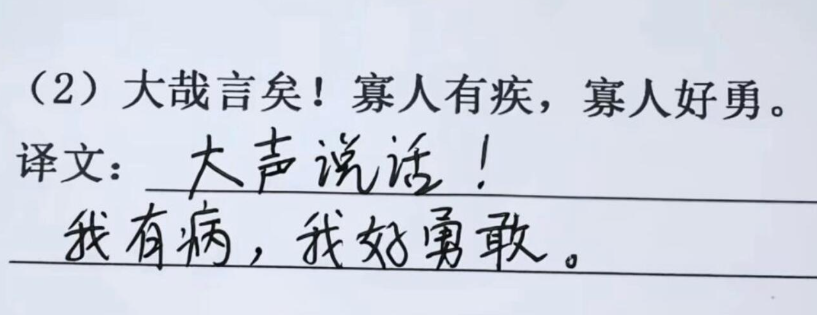 （2）大哉言矣！寡人有疾，寡人好勇。
译文：大声说话！
我有病，我好勇敢。